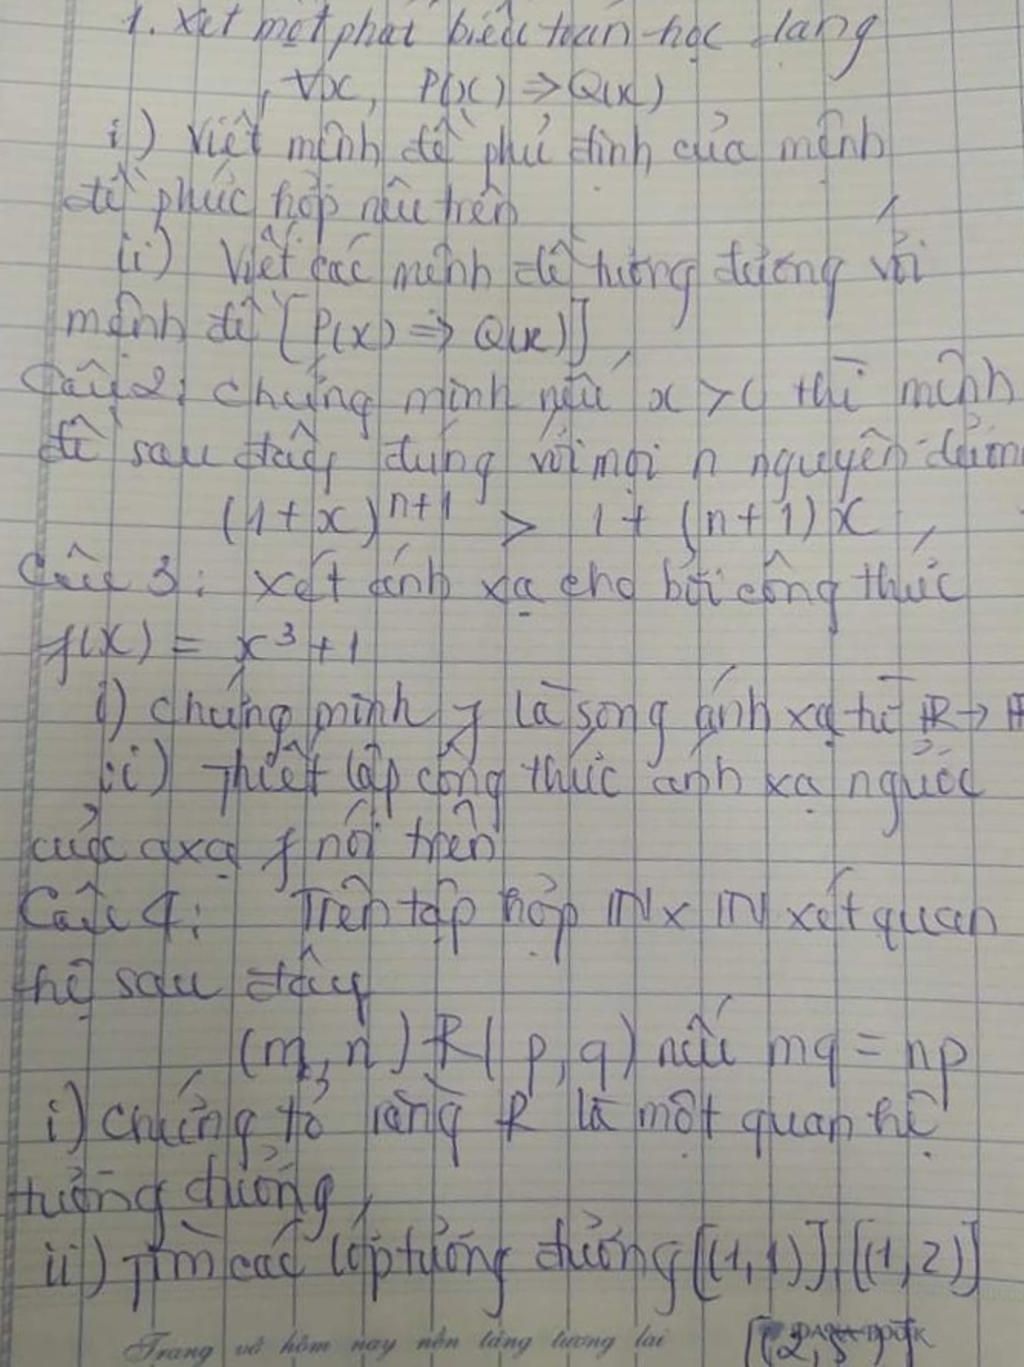 1. Xét một phát biểu toán học dạng
∀x, P(x) ⇒ Q(x)
i) Viết mệnh đề phủ định của mệnh
đề phức hợp nêu trên
ii) Viết các mệnh đề tương đương với
mệnh đề [P(x) ⇒ Q(x)]
Câu 2: Chứng minh nếu x > 0 thì mệnh
đề sau đây đúng với mọi n nguyên dương
(1+x)^{n+1} > 1 + (n+1)x
Câu 3: Xét ánh xạ cho bởi công thức
f(x) = x³ + 1
i) Chứng minh f là song ánh xạ từ R →
ii) Thiết lập công thức ánh xạ ngược
của axạ f nói trên
Câu 4: Trên tập hợp IN x IN xét quan
hệ sau đây
(m, n) R (p, q) nếu mq = np
i) Chứng tỏ rằng R là một quan hệ
tương đương
ii) Tìm các lớp tương đương [(1,1)] [(1,2)]
Trang vở hôm nay nền tảng tương lai